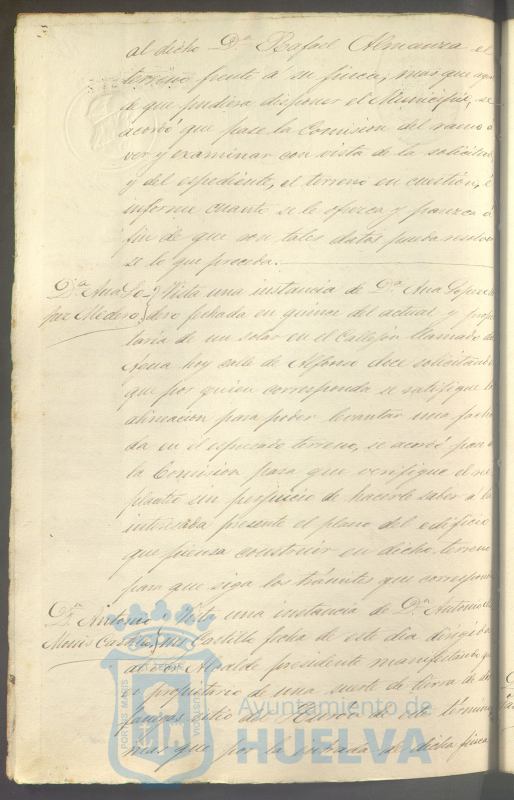 al dicho Dn Rafael Almansa el
terreno frente á su finca, mas que
de que pudiera disponer el Municipio, se
acordó que pase la Comision del ramo á
ver y examinar con vista de la solicitud
y del espediente, el terreno en cuestión, é
informe cuanto se le ofrezca y parezca á
fin de que con tales datos pueda resolver
se lo que proceda.
Da Ana Lo-
pez Medero
Vista una instancia de Da Ana Lopez Me
dero fechada en quince del actual y propie
taria de un solar en el Callejón llamado de
hoy calle de Alfonso doce solicitando
que por quien corresponda se ratifique la
alineacion para poder levantar una facha
da en el espresado terreno, se acordó pase á
la Comision para que verifique el re
planteo sin perjuicio de hacerle saber a la
interesada presente el plano del edificio
que piensa construir en dicho terreno
para que siga los trámites que correspon
Dn Antonio
Castilla
Vista una instancia de Dn Antonio
Castilla fecha de este dia dirigida
al Sor Alcalde presidente manifestando que
es propietario de una suerte de tierra de
sitio del de este término
mas que por la entrada de dicha finca
PORTUS MARIS
CUSTODIA
Ayuntamiento de
HUELVA